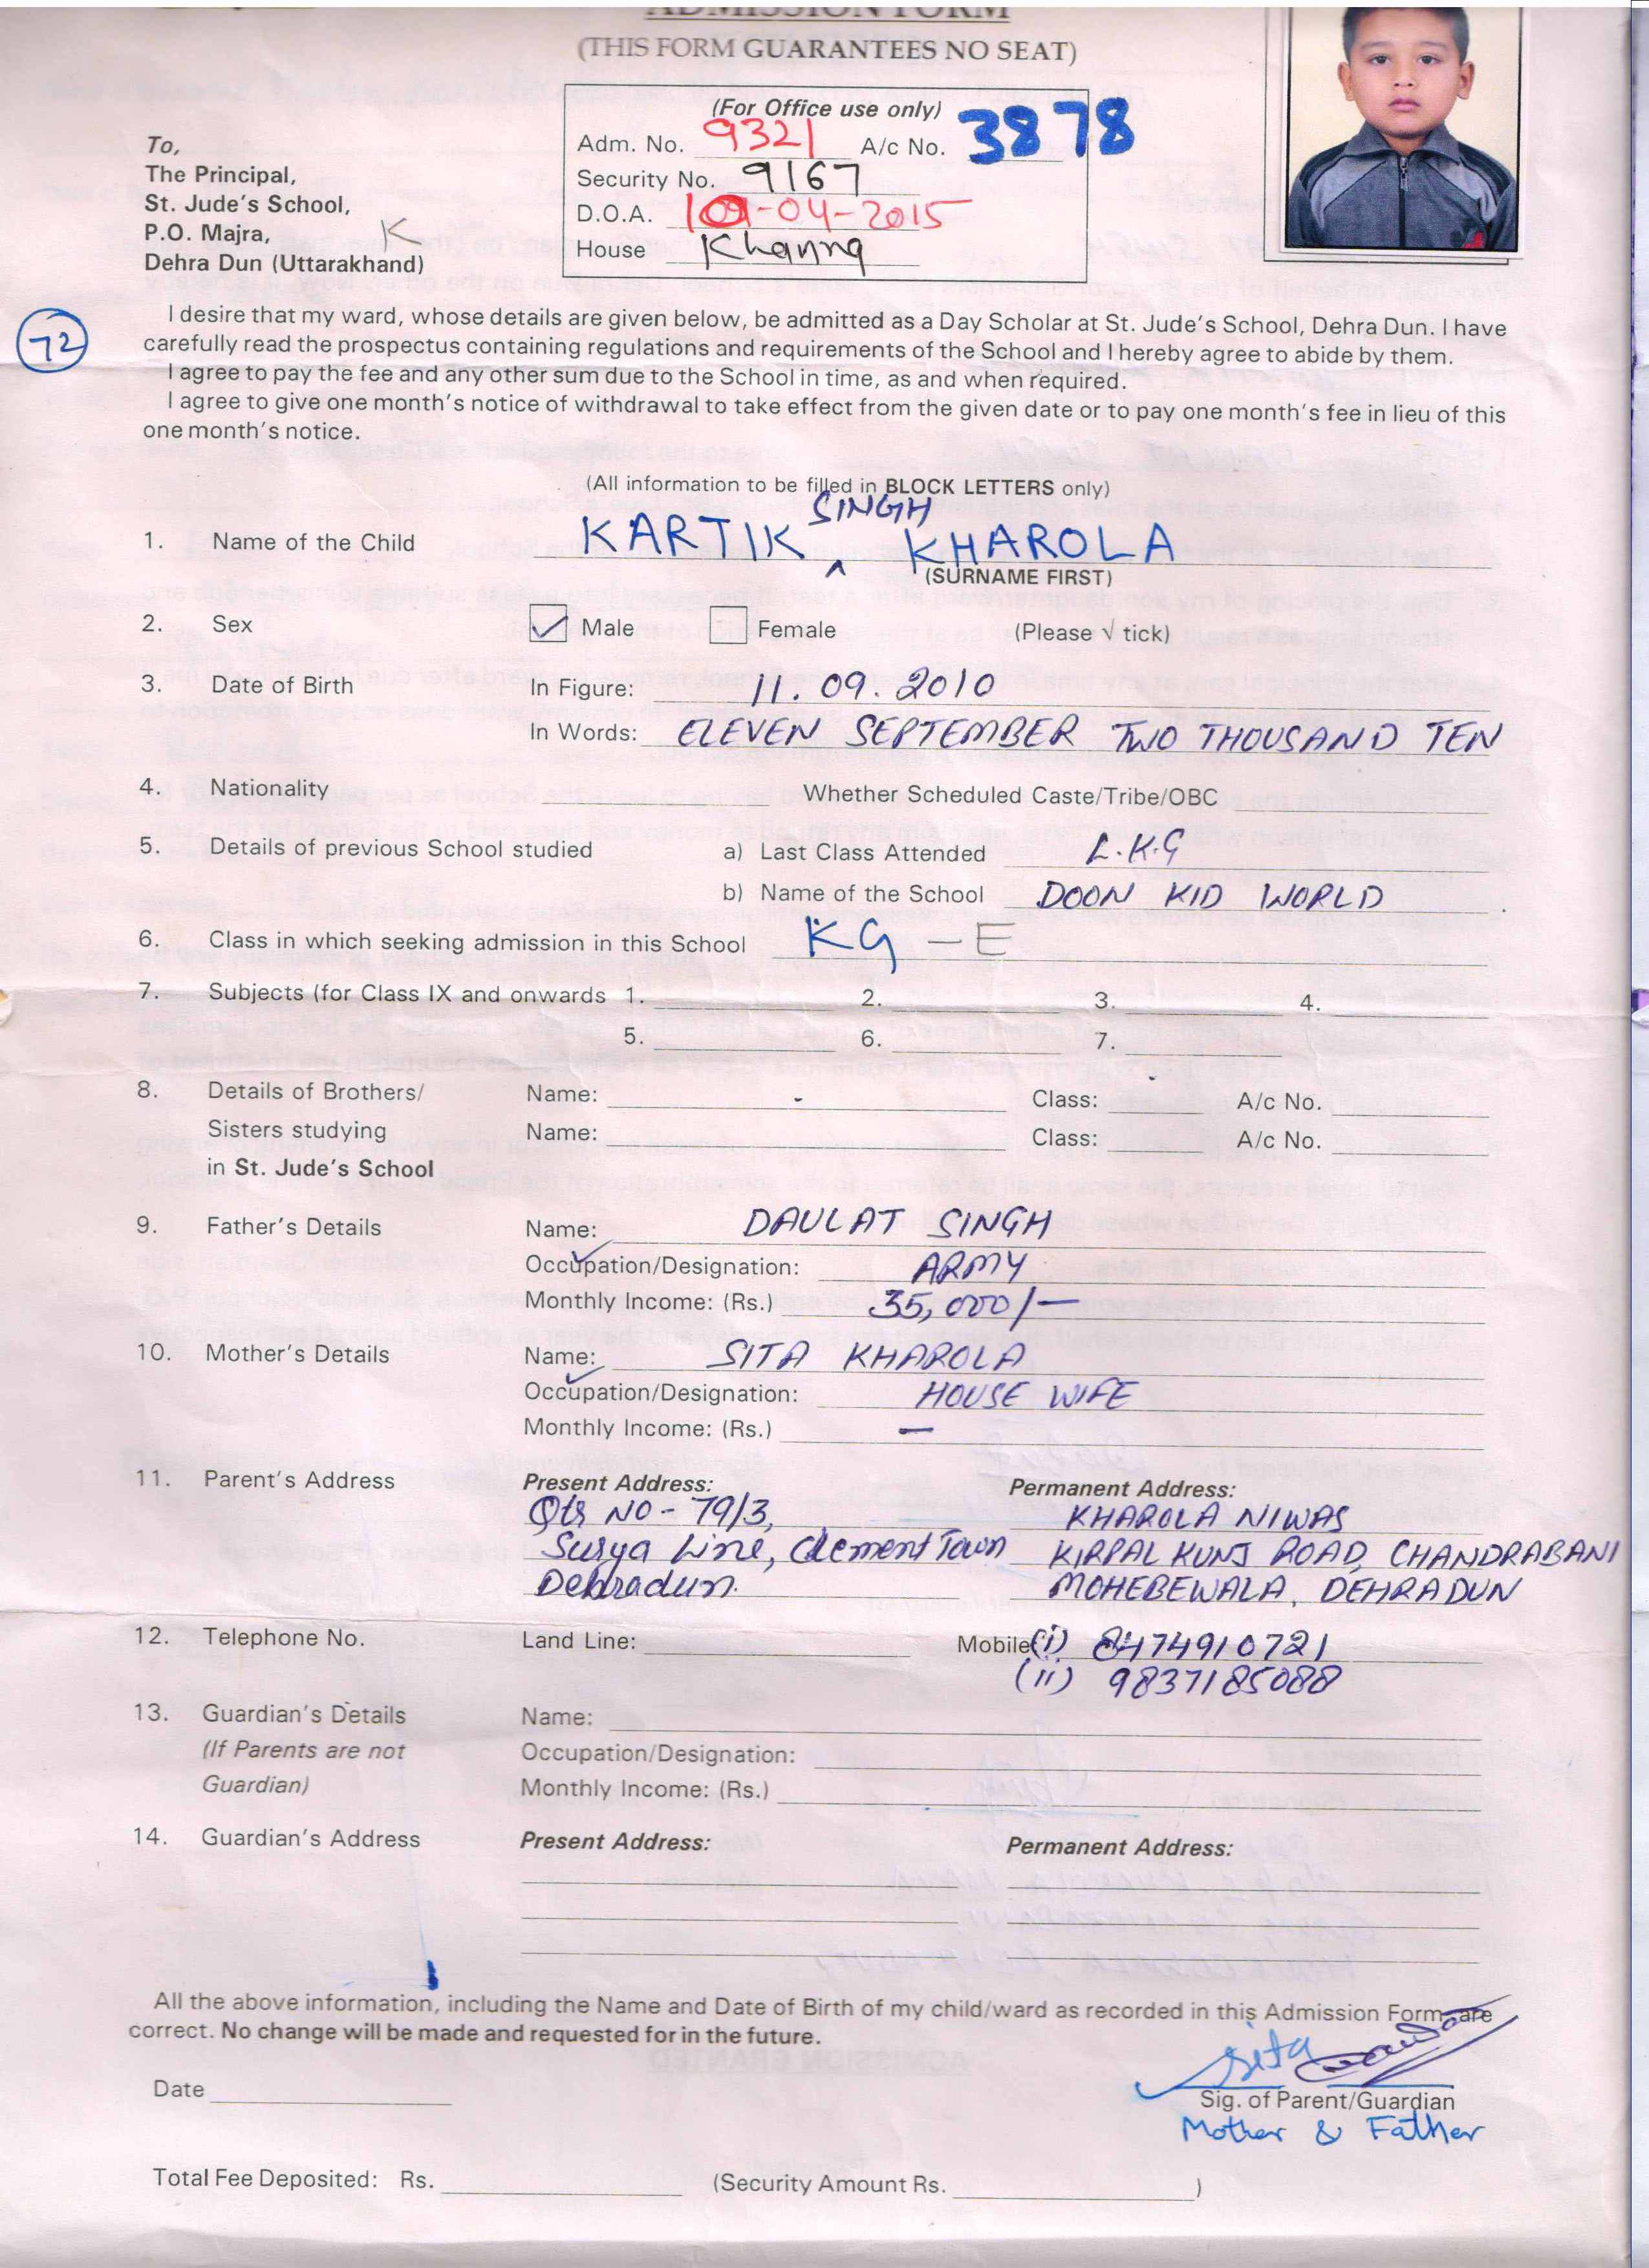 ADMISSION FORM
(THIS FORM GUARANTEES NO SEAT)
(For Office use only)
Adm. No. 9321 A/c No. 3878
Security No. 9167
D.O.A. -04-2015
House Khanna
To,
The Principal,
St. Jude's School,
P.O. Majra,
Dehra Dun (Uttarakhand)
K
72
I desire that my ward, whose details are given below, be admitted as a Day Scholar at St. Jude's School, Dehra Dun. I have
carefully read the prospectus containing regulations and requirements of the School and I hereby agree to abide by them.
I agree to pay the fee and any other sum due to the School in time, as and when required.
I agree to give one month's notice of withdrawal to take effect from the given date or to pay one month's fee in lieu of this
one month's notice.
(All information to be filled in BLOCK LETTERS only)
SINGH
1. Name of the Child KARTIK ^ KHAROLA
(SURNAME FIRST)
2. Sex Male Female (Please √ tick)
3. Date of Birth In Figure: 11.09.2010
In Words: ELEVEN SEPTEMBER TWO THOUSAND TEN
4. Nationality Whether Scheduled Caste/Tribe/OBC
5. Details of previous School studied a) Last Class Attended L.K.G
b) Name of the School DOON KID WORLD
6. Class in which seeking admission in this School KG - E
7. Subjects (for Class IX and onwards 1. 2. 3. 4.
5. 6. 7.
8. Details of Brothers/ Name: - Class: A/c No.
Sisters studying Name: Class: A/c No.
in St. Jude's School
9. Father's Details Name: DAULAT SINGH
Occupation/Designation: ARMY
Monthly Income: (Rs.) 35,000/-
10. Mother's Details Name: SITA KHAROLA
Occupation/Designation: HOUSE WIFE
Monthly Income: (Rs.) -
11. Parent's Address Present Address: Permanent Address:
Qts NO - 79/3, KHAROLA NIWAS
Surya Line, Clement Town KIRPAL KUNJ ROAD, CHANDRABANI
Dehradun. MOHEBEWALA, DEHRADUN
12. Telephone No. Land Line: Mobile (i) 8474910721
(ii) 9837185088
13. Guardian's Details Name:
(If Parents are not Occupation/Designation:
Guardian) Monthly Income: (Rs.)
14. Guardian's Address Present Address: Permanent Address:
All the above information, including the Name and Date of Birth of my child/ward as recorded in this Admission Form are
correct. No change will be made and requested for in the future.
Sita
Date Sig. of Parent/Guardian
Mother & Father
Total Fee Deposited: Rs. (Security Amount Rs. )